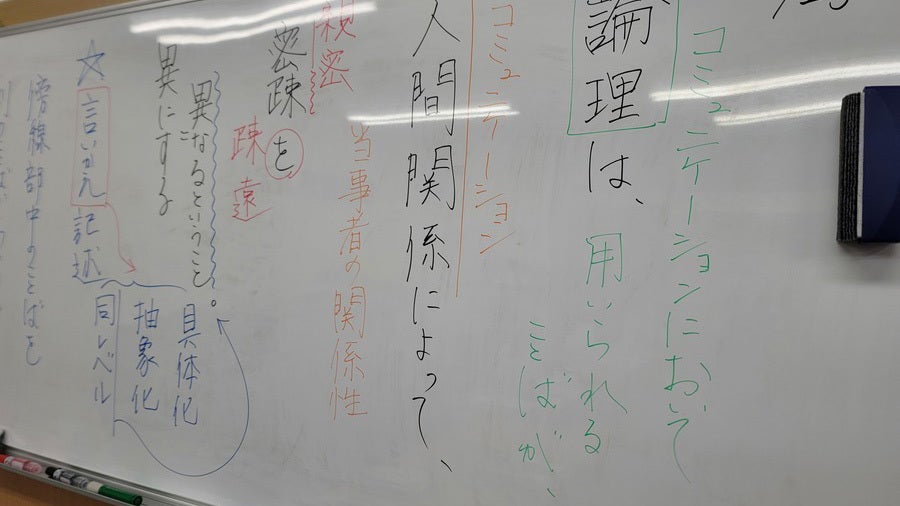 コミュニケーションにおいて
論理は、
用いられる
ことばが、
コミュニケーション
人間関係によって、
当事者の関係性
親密
密疎を
疎遠
異なるということ。
異にする
具体化
抽象化
同レベル
☆言いかえ記述
傍線部中のことばを